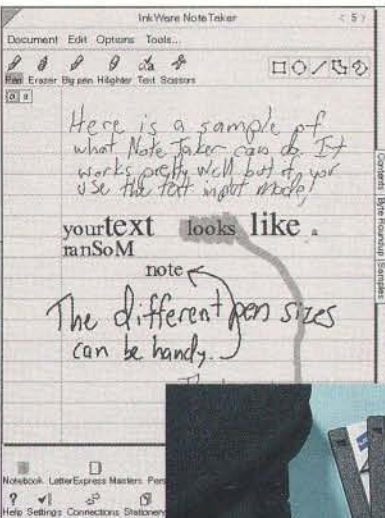 InkWare NoteTaker < 5 >
Document Edit Options Tools...
Pen Eraser Big pen Hilighter Text Scissors
Here is a sample of
what Note Taker can do. It
works pretty well but if you
use the text input mode,
your text looks like a
ranSoM
note
The different pen sizes
can be handy.
Contents Byte Roundup Samples
Notebook LetterExpress Masters
Help Settings Connections Stationery